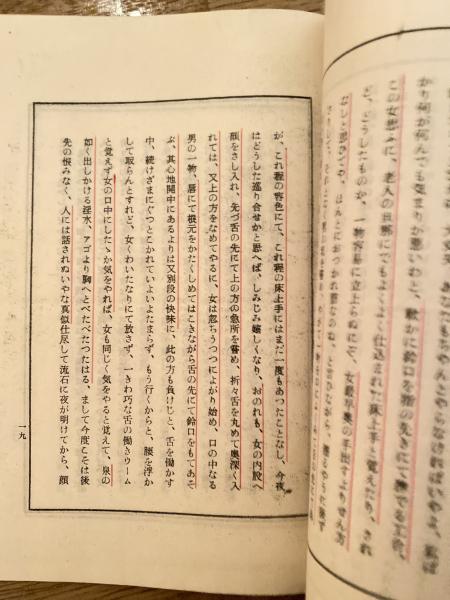 あなたもちやんとやらなければいやよ、私ば
かり何が何んでも気まりが悪いわと、軟かに鈴口を指の先にて撫でる工合、
この女思ふに、老人の旦那にでもよくよく仕込まれた床上手と覚えたり、され
ど、どうしたものか、一物容易に立上らぬにぞ、女最早奥の手出すよりせん方
なしと思ひてや、ほんとにおつかれ筋なのね、と言ひながら、
が、これ程の容色にて、これ程の床上手にはまだ一度もあつたことなし、今夜
はどうした巡り合せかと思へば、しみじみ嬉しくなり、おのれも、女の内股へ
顔をさし入れ、先づ舌の先にて上の方の急所を嘗め、折々舌を丸めて奥深く入
れては、又上の方をなめてやるに、女は忽ちうつつによがり始め、口の中なる
男の一物、唇にて根元をかたくしめてはこきながら舌の先にて鈴口をもてあそ
ぶ、其心地開中にあるよりは又別段の快味に、此の方も負けじと、舌を働かす
中、続けざまにぐつとこかれていよいよたまらず、もう行くからと、腰を浮か
して取らんとすれど、女くわいたなりにて放さず、一きわ巧な舌の働きウーム
と覚えず女の口中にしたゝか気をやれば、女も同じく気をやると覚えて、泉の
如く出しかける淫水、アゴより胸へとべたべたつたはる、まして今度こそは後
先の恨みなく、人には話されぬいやな真似仕尽して流石に夜が明けてから、顔
一九